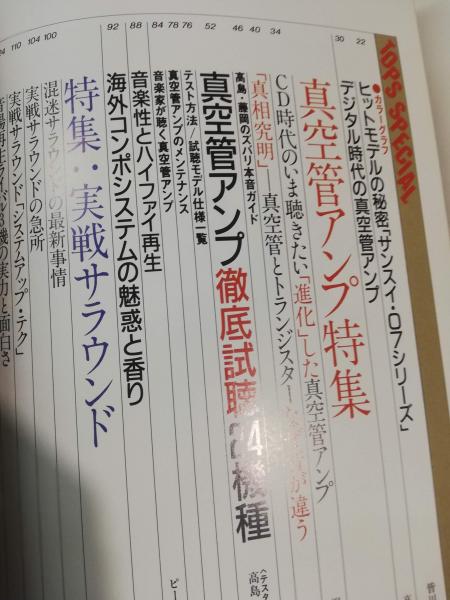 TOPS SPECIAL
●カラーグラフ
22 ヒットモデルの秘密「サンスイ・07シリーズ」
30 デジタル時代の真空管アンプ
真空管アンプ特集
34 CD時代のいま聴きたい「進化」した真空管アンプ
40 「真相究明」真空管とトランジスター
が違う
46 高島・藤岡のズバリ本音ガイド
真空管アンプ徹底試聴24機種
52 テスト方法/試聴モデル仕様一覧
〈テスタ
高島
76 真空管アンプのメンテナンス
78 音楽家が聴く真空管アンプ
84 音楽性とハイファイ再生
88 海外コンポシステムの魅惑と香り
ピー
92 特集:実戦サラウンド
混迷サラウンドの最新事情
100 実戦サラウンドの急所
104 実戦サラウンド「システムアップ・テク」
110
機の実力と面白さ